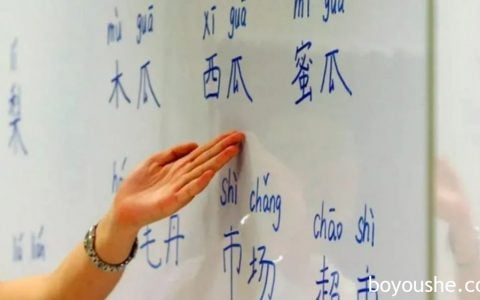 mù guā xī guā mì guā
梨 木瓜 西瓜 蜜瓜
shì chǎng chāo shì
liú lián 毛丹 市场 超市
boyoushe.co